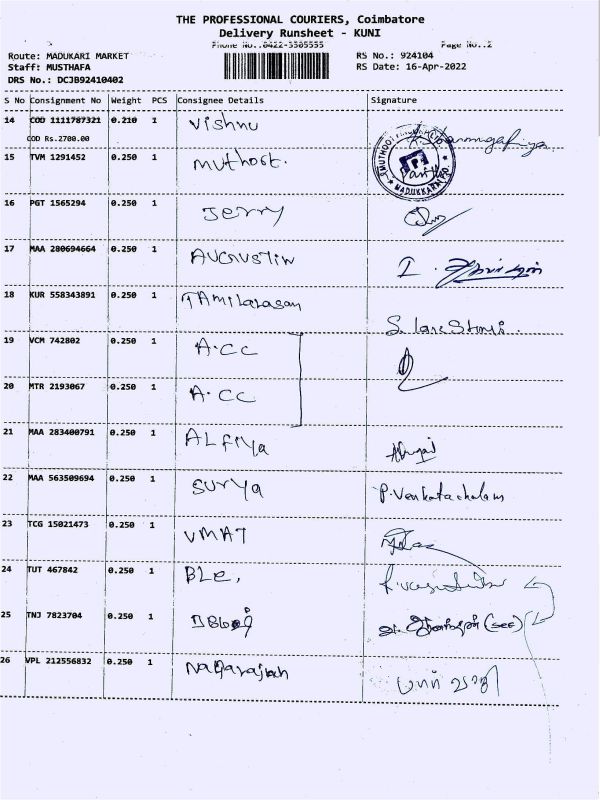 THE PROFESSIONAL COURIERS, Coimbatore
Delivery Runsheet - KUNI
Phone No.:0422-3505555 Page No.:2
Route: MADUKARI MARKET RS No.: 924104
Staff: MUSTHAFA RS Date: 16-Apr-2022
DRS No.: DCJB92410402
S No Consignment No Weight PCS Consignee Details Signature
14 COD 1111787321 0.210 1 Vishnu
COD Rs.2700.00
15 TVM 1291452 0.250 1 Muthoot.
MADUKKARAI
16 PGT 1565294 0.250 1 Jerry
17 MAA 280694664 0.250 1 AUGUSTIN I.
18 KUR 558343891 0.250 1 TAMilarasan
19 VCM 742802 0.250 1 A.CC
20 MTR 2193067 0.250 1 A.CC
21 MAA 283400791 0.250 1 ALFiya
22 MAA 563509694 0.250 1 SURYA P.Venkatachalam
23 TCG 15021473 0.250 1 VMAT
24 TUT 467842 0.250 1 BLE,
25 TNJ 7823704 0.250 1 (sec)
26 VPL 212556832 0.250 1 Nagarajan